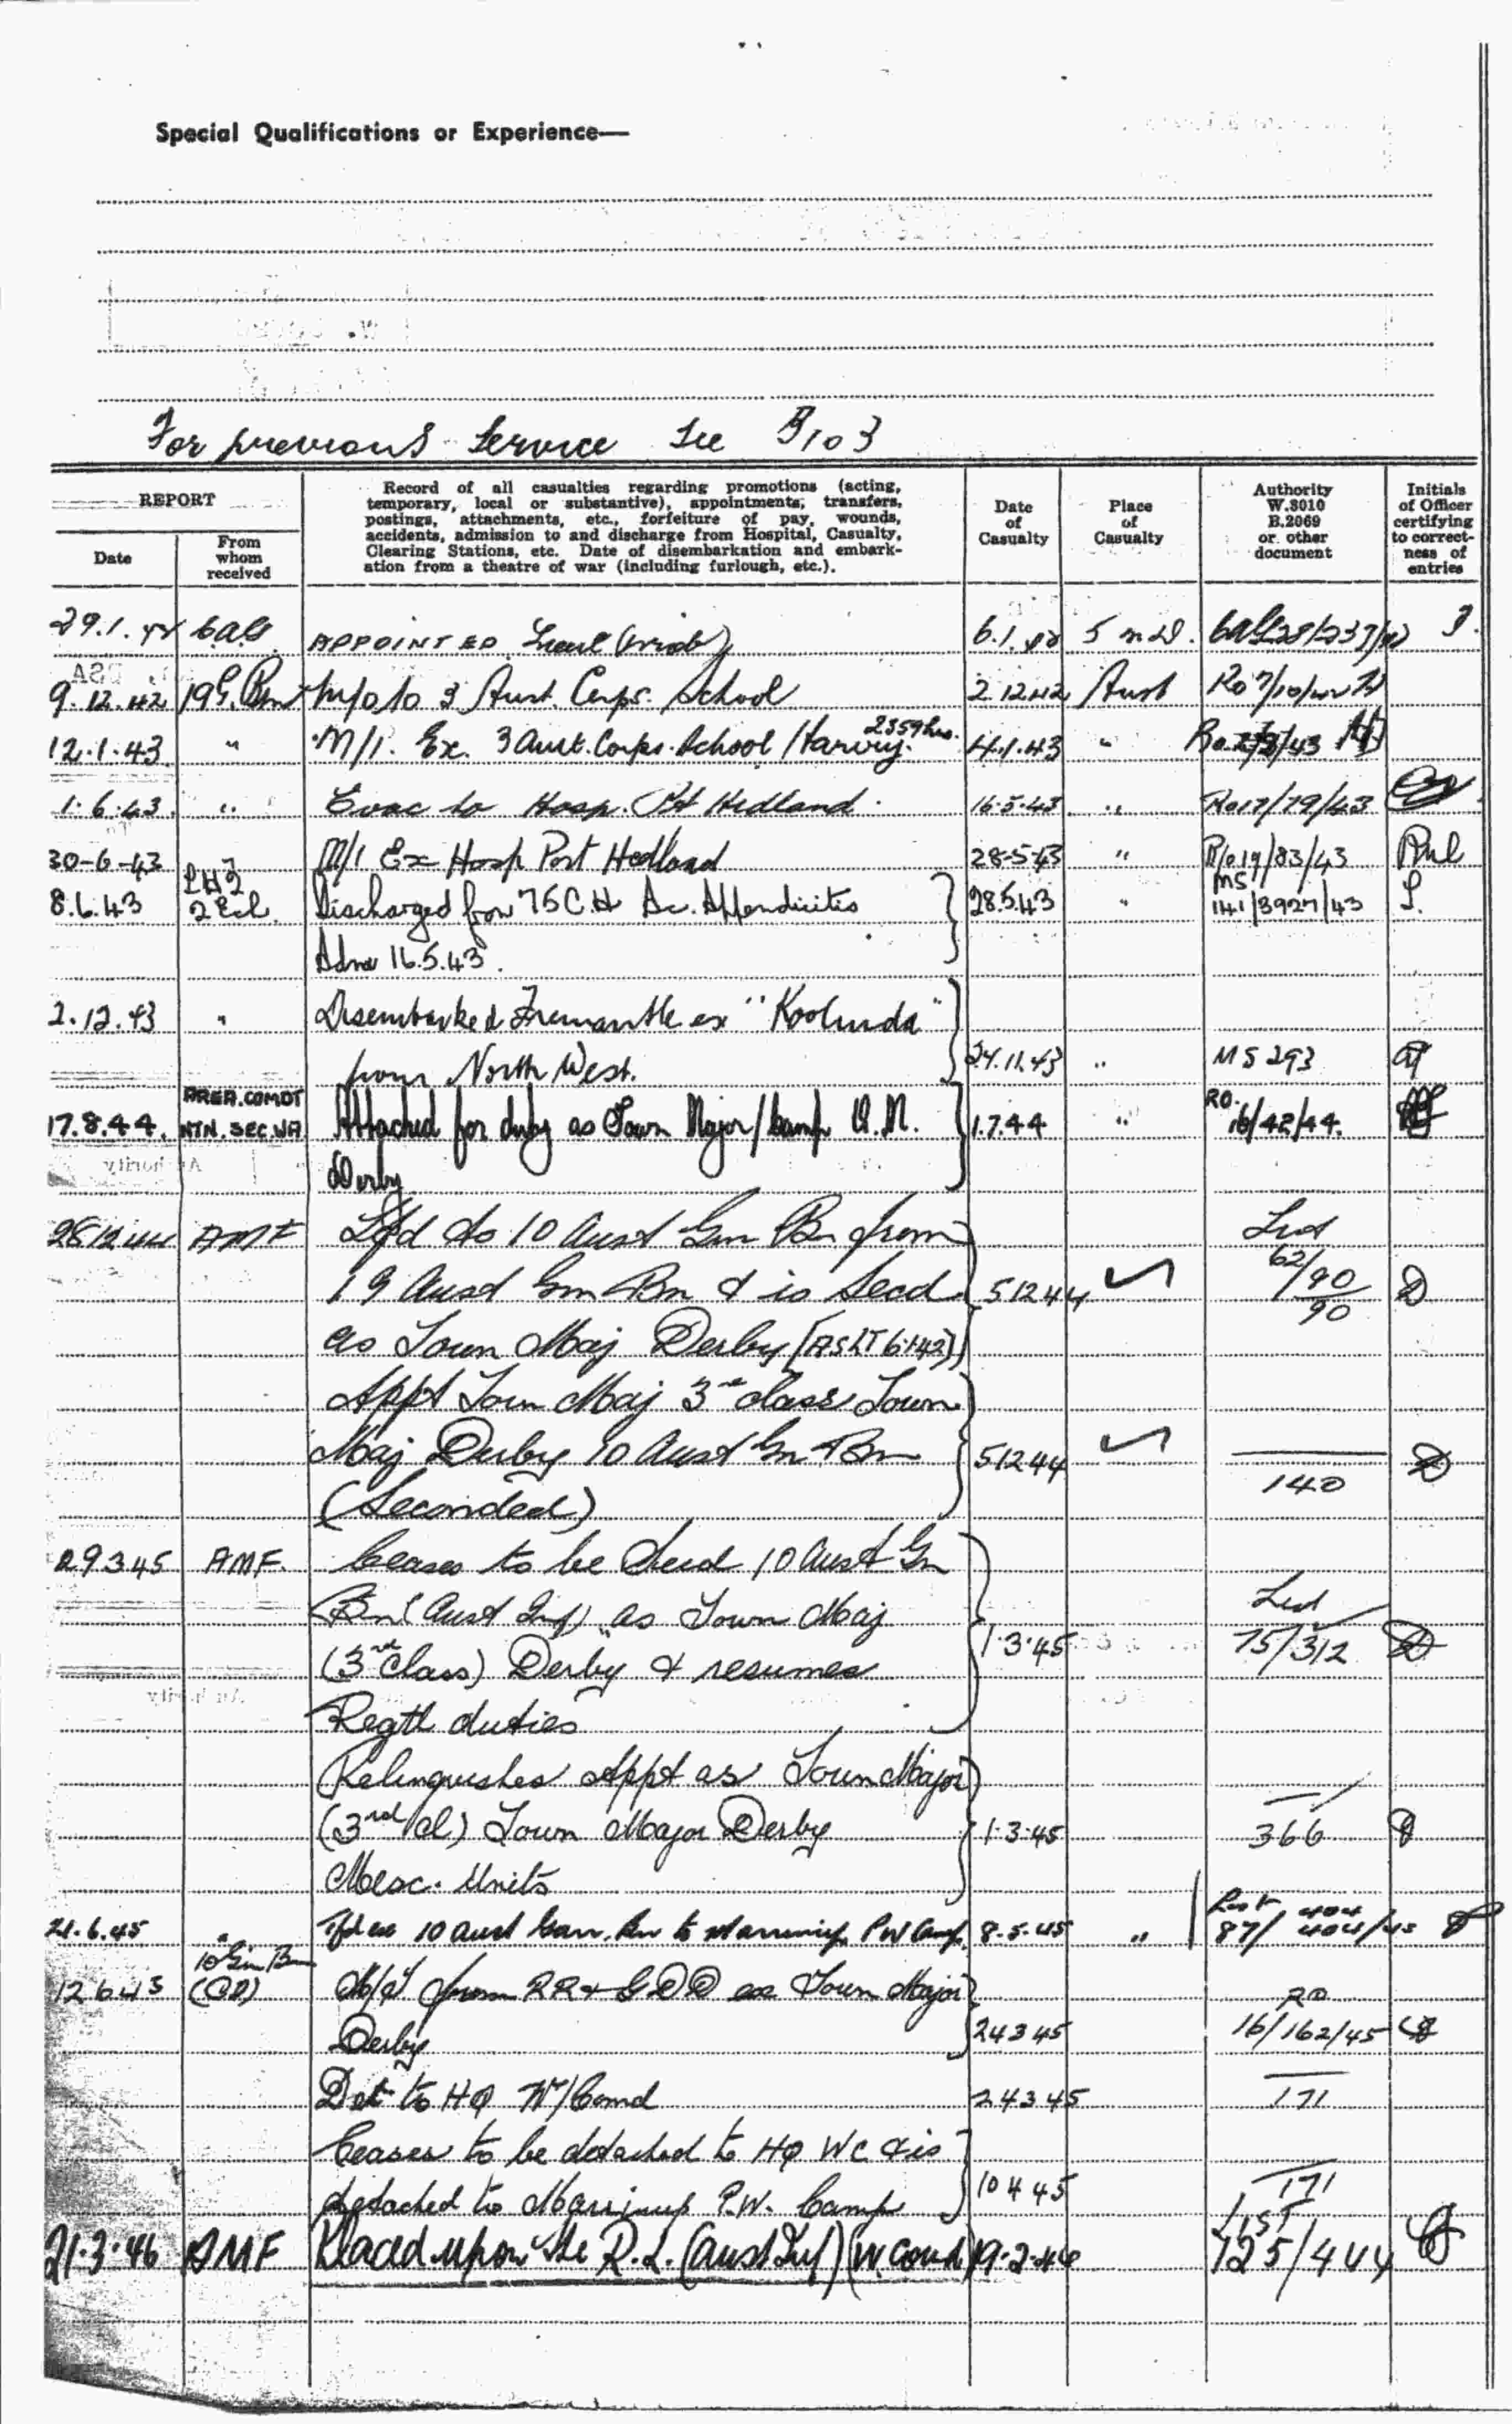 Special Qualifications or Experience—
For previous Service See B103
REPORT
Date
From whom received
Record of all casualties regarding promotions (acting,
temporary, local or substantive), appointments, transfers,
postings, attachments, etc., forfeiture of pay, wounds,
accidents, admission to and discharge from Hospital, Casualty,
Clearing Stations, etc. Date of disembarkation and embark-
ation from a theatre of war (including furlough, etc.).
Date of Casualty
Place of Casualty
Authority W.3010 B.2069 or other document
Initials of Officer certifying to correct-ness of entries
29.1.42 APPOINTED Lieut (Prob) 6.1.42 5 M.D.
9.12.42 19 G. Bn M/O to 3 Aust. Corps. School 2.12.42 Aust
2359 hrs.
12.1.43 " M/I. Ex. 3 Aust. Corps. School Harvey. 4.1.43 "
1.6.43 " Evac to Hosp. Pt Hedland. 16.5.43 " Ro 17/79/43
30-6-43 M/I Ex Hosp Port Hedland 28-5-43 " R/o 19/83/43
8.6.43 2 Ech. Discharged from 75 C.H Ac. Appendicitis 28.5.43 " MS 141/3927/43
Adm 16.5.43.
2.12.43 " Disembarked Fremantle ex "Koolinda"
from North West. 24.11.43 " MS 293
AREA.COMDT
17.8.44. NTN. SEC. WA Attached for duty as Town Major/Camp Q.M. 1.7.44 " RO. 16/42/44.
Derby
28 12 44 AMF Tfd to 10 Aust Gn Bn from
19 Aust Gn Bn & is Secd 5 12 44 62/90
as Town Maj Derby 90
Appt Town Maj 3rd class Town
Maj Derby 10 Aust Gn Bn 5 12 44
(Seconded) 140
29 3 45 AMF. Ceases to be Secd 10 Aust Gn
Bn (Aust Inf) as Town Maj
(3rd Class) Derby & resumes 1.3.45 75/312
Regtl duties
Relinquishes Appt as Town Major
(3rd Cl) Town Major Derby 1.3.45 366
Misc. Units
21.6.45 " Tfd ex 10 Aust Garr. Bn to Marrinup PW Camp. 8.5.45 "
10 Gn Bn
12 6 45 M/I from RR & GDD ex Town Major RO
Derby 24 3 45 16/162/45
Det to HQ W/Comd 24 3 45 171
Ceases to be detached to HQ WC & is
detached to Marrinup P.W. Camp 10 4 45 171
21.3.46 AMF Placed upon the R.L. (Aust Inf) (W. Comd) 19.2.46 LIST 125/444